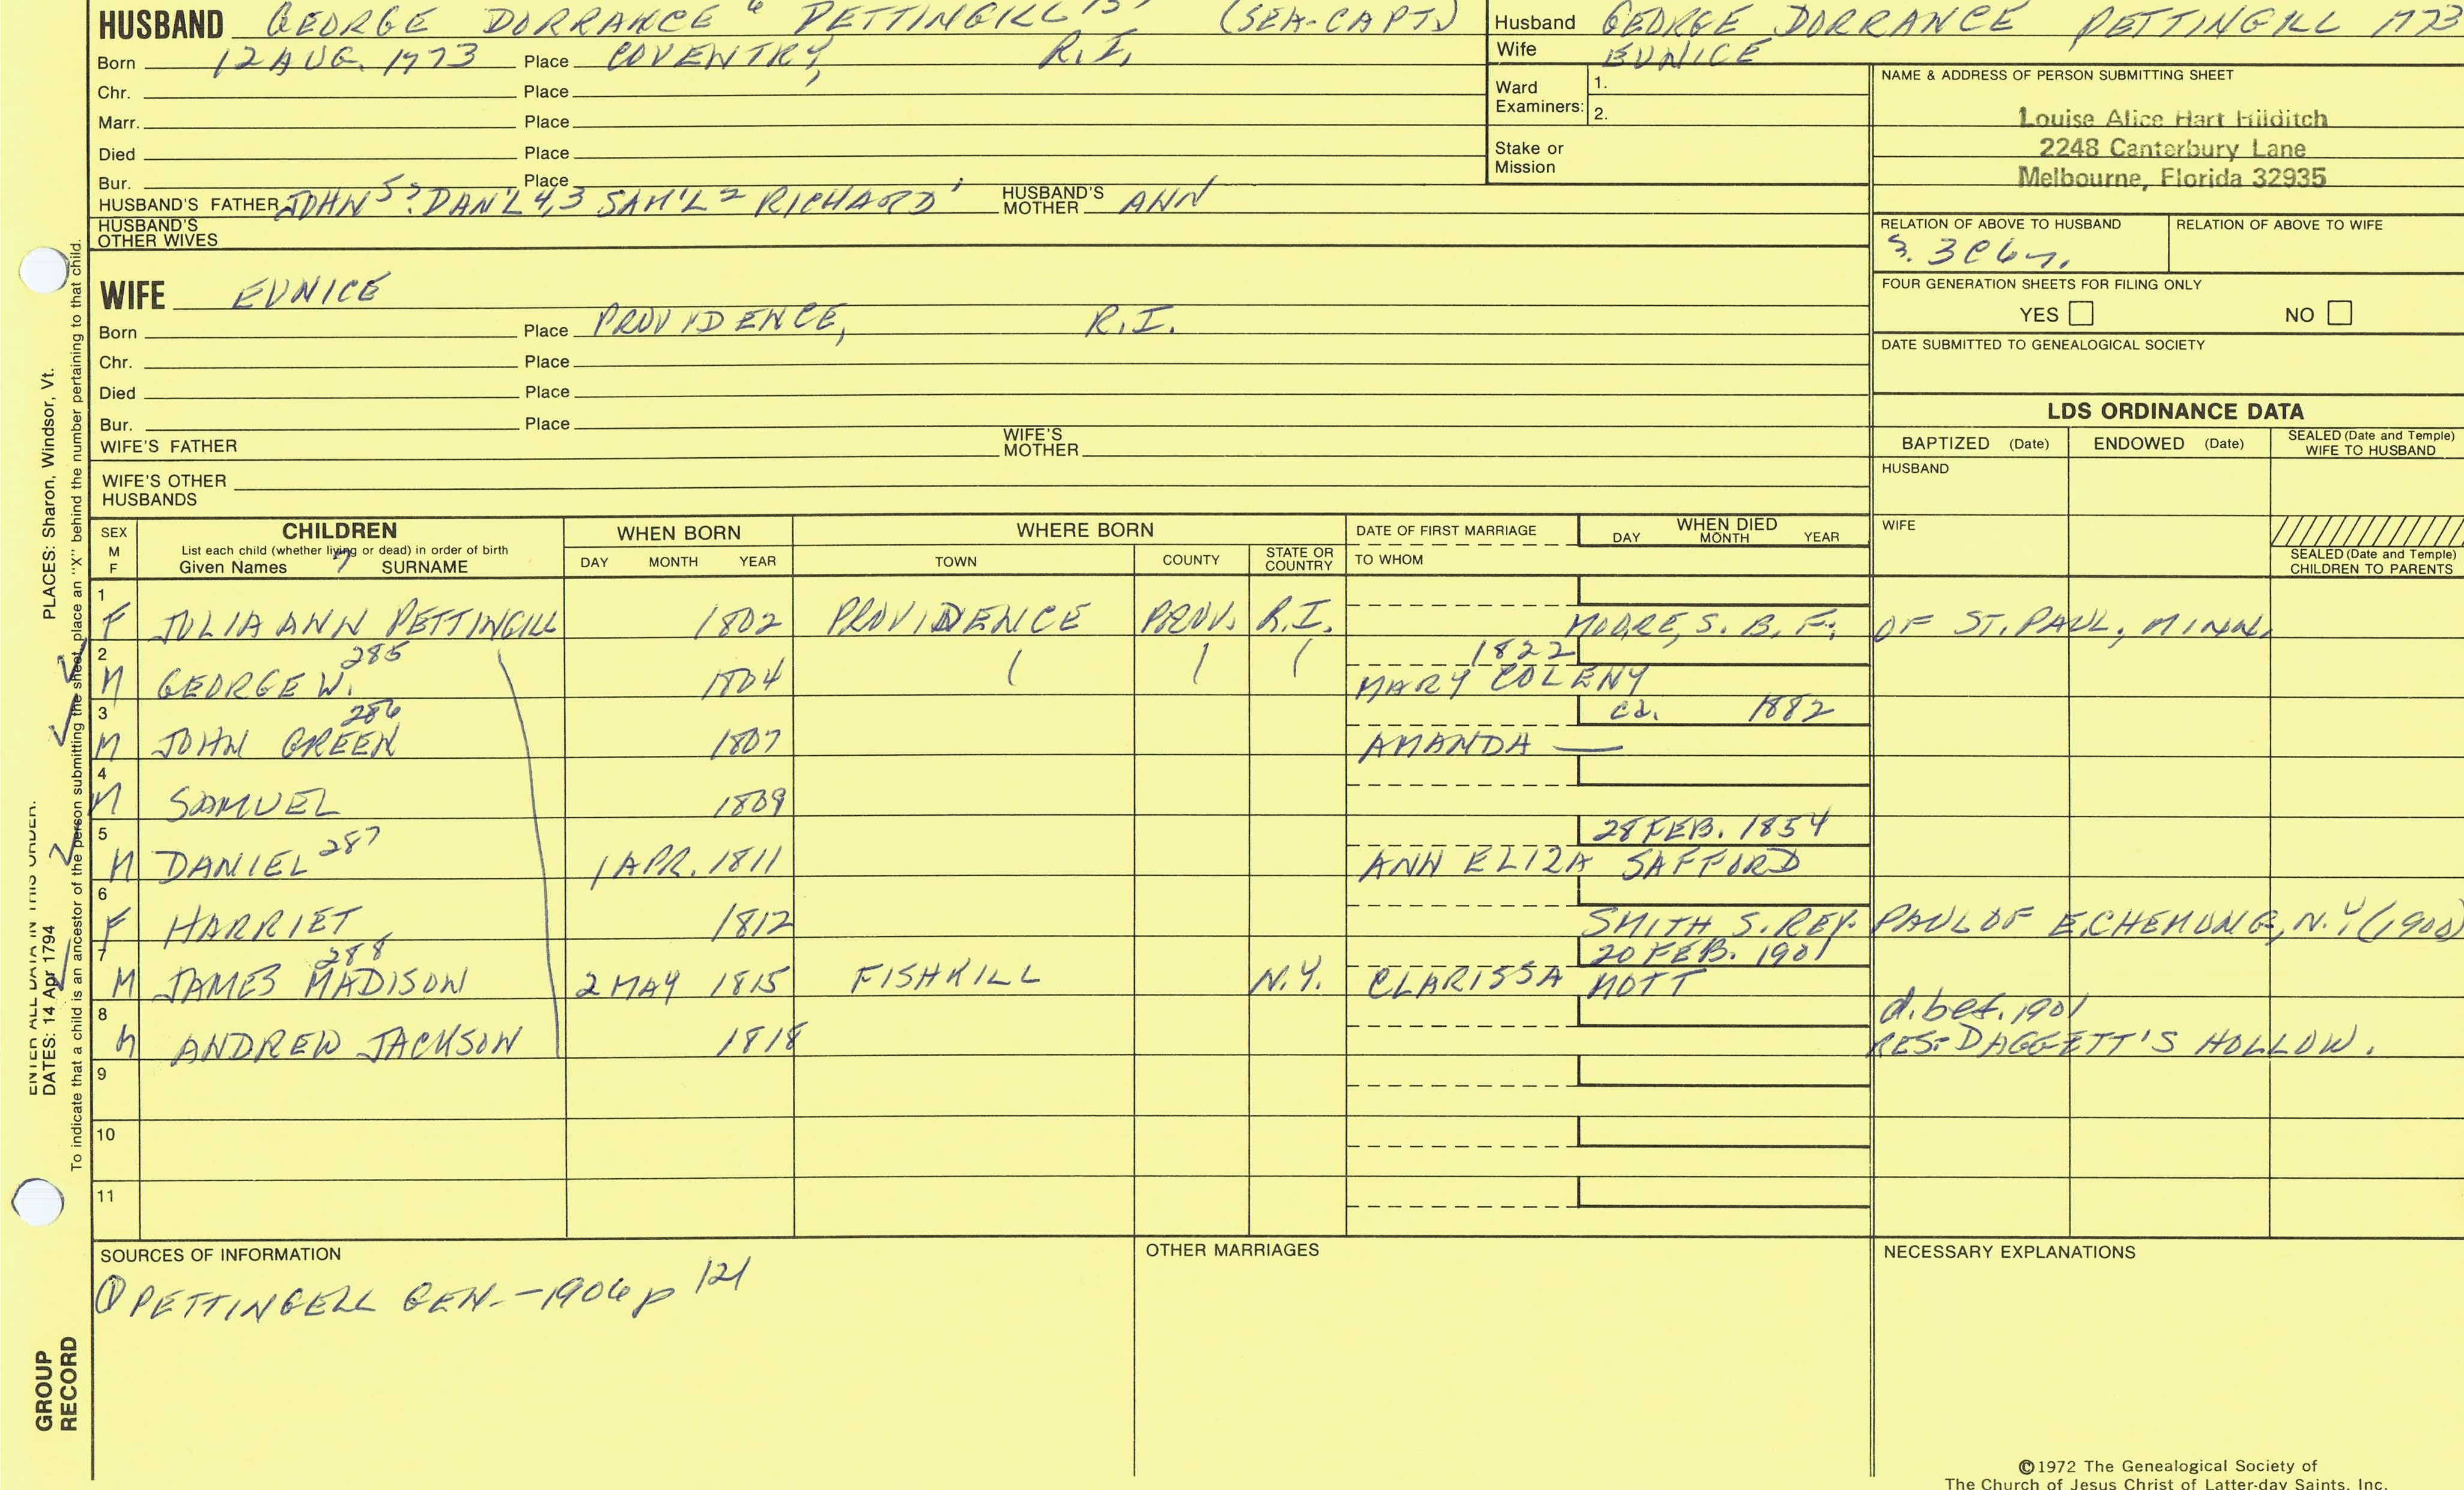 HUSBAND GEORGE DORRANCE 6 PETTINGILL (SEA-CAPT)
Born 12 AUG. 1773 Place COVENTRY, R.I.
Chr. Place
Marr. Place
Died Place
Bur. Place
HUSBAND'S FATHER JOHN 5? DAN'L 4,3 SAM'L 2 RICHARD 1 HUSBAND'S MOTHER ANN
HUSBAND'S OTHER WIVES
WIFE EUNICE
Born Place PROVIDENCE, R.I.
Chr. Place
Died Place
Bur. Place
WIFE'S FATHER WIFE'S MOTHER
WIFE'S OTHER HUSBANDS
Husband GEORGE DORRANCE PETTINGILL 1773
Wife EUNICE
Ward Examiners: 1.
2.
Stake or Mission
NAME & ADDRESS OF PERSON SUBMITTING SHEET
Louise Alice Hart Hilditch
2248 Canterbury Lane
Melbourne, Florida 32935
RELATION OF ABOVE TO HUSBAND RELATION OF ABOVE TO WIFE
FOUR GENERATION SHEETS FOR FILING ONLY
YES NO
DATE SUBMITTED TO GENEALOGICAL SOCIETY
LDS ORDINANCE DATA
BAPTIZED (Date) ENDOWED (Date) SEALED (Date and Temple) WIFE TO HUSBAND
HUSBAND
WIFE
SEALED (Date and Temple) CHILDREN TO PARENTS
SEX M F
CHILDREN
List each child (whether living or dead) in order of birth
Given Names SURNAME
WHEN BORN
DAY MONTH YEAR
WHERE BORN
TOWN COUNTY STATE OR COUNTRY
DATE OF FIRST MARRIAGE
TO WHOM
WHEN DIED
DAY MONTH YEAR
1 F JULIA ANN PETTINGILL 1802 PROVIDENCE PROV. R.I. MOORE, S. B. F., OF ST. PAUL, MINN.
2 M GEORGE W. 285 1804 1822 MARY COLENY
3 M JOHN GREEN 286 1807 ca. 1882 AMANDA —
4 M SAMUEL 1809
5 M DANIEL 287 1 APR. 1811 28 FEB. 1854 ANN ELIZA SAFFORD
6 F HARRIET 1812 SMITH S. REV. PAUL OF E.CHEMUNG, N.Y (1900)
7 M JAMES MADISON 288 2 MAY 1815 FISHKILL N.Y. 20 FEB. 1901 CLARISSA MOTT
8 M ANDREW JACKSON 1818 d. bef. 1901
RES- DAGGETT'S HOLLOW.
9
10
11
SOURCES OF INFORMATION
① PETTINGELL GEN. - 1906 p 121
OTHER MARRIAGES
NECESSARY EXPLANATIONS
©1972 The Genealogical Society of
The Church of Jesus Christ of Latter-day Saints, Inc.
ENTER ALL DATA IN THIS ORDER:
DATES: 14 Apr 1794 PLACES: Sharon, Windsor, Vt.
To indicate that a child is an ancestor of the person submitting the sheet, place an "X" behind the number pertaining to that child.
GROUP
RECORD